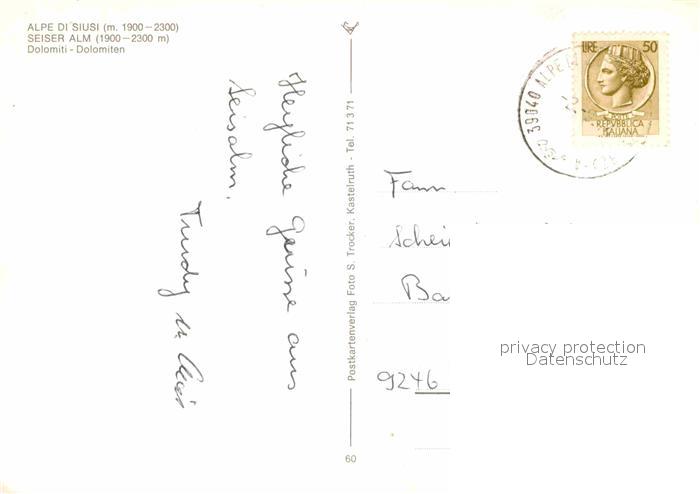 ALPE DI SIUSI (m. 1900-2300)
SEISER ALM (1900-2300 m)
Dolomiti - Dolomiten
Herzliche Grüsse aus
Seisalm.
Trudy u.
Postkartenverlag Foto S. Trocker, Kastelruth - Tel. 71371
60
LIRE 50
REPVBBLICA
ITALIANA
39040 ALPE
Fam
Schei
Ba
9246
privacy protection
Datenschutz